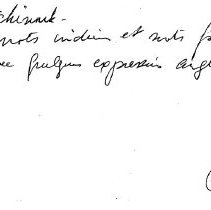 chinook -
mots indien et mots f
ec quelques expressions angl